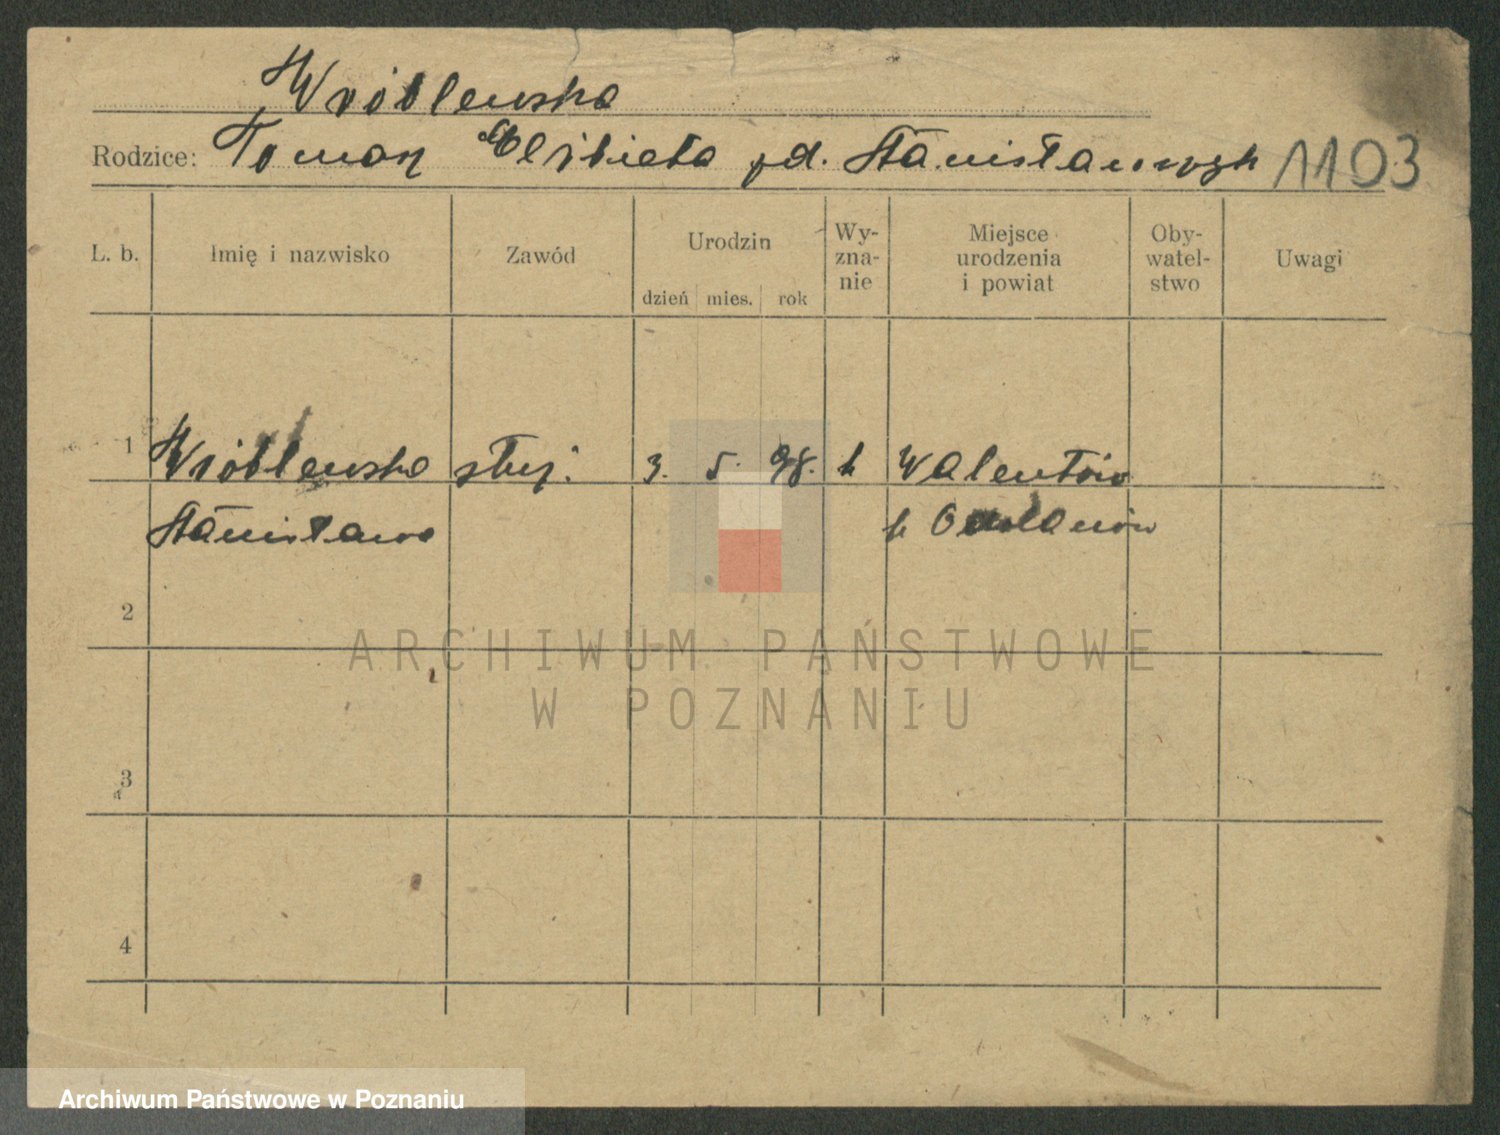 Wróblewska
Rodzice: Tomasz Elżbieta zd. Stanisławczyk 1103
L. b. Imię i nazwisko Zawód Urodzin dzień mies. rok Wy-zna-nie Miejsce urodzenia i powiat Oby-watel-stwo Uwagi
1 Wróblewska służ. 3. 5. 98. k Walentów
Stanisława k Odolanów
2
ARCHIWUM PAŃSTWOWE
W POZNANIU
3
4
Archiwum Państwowe w Poznaniu